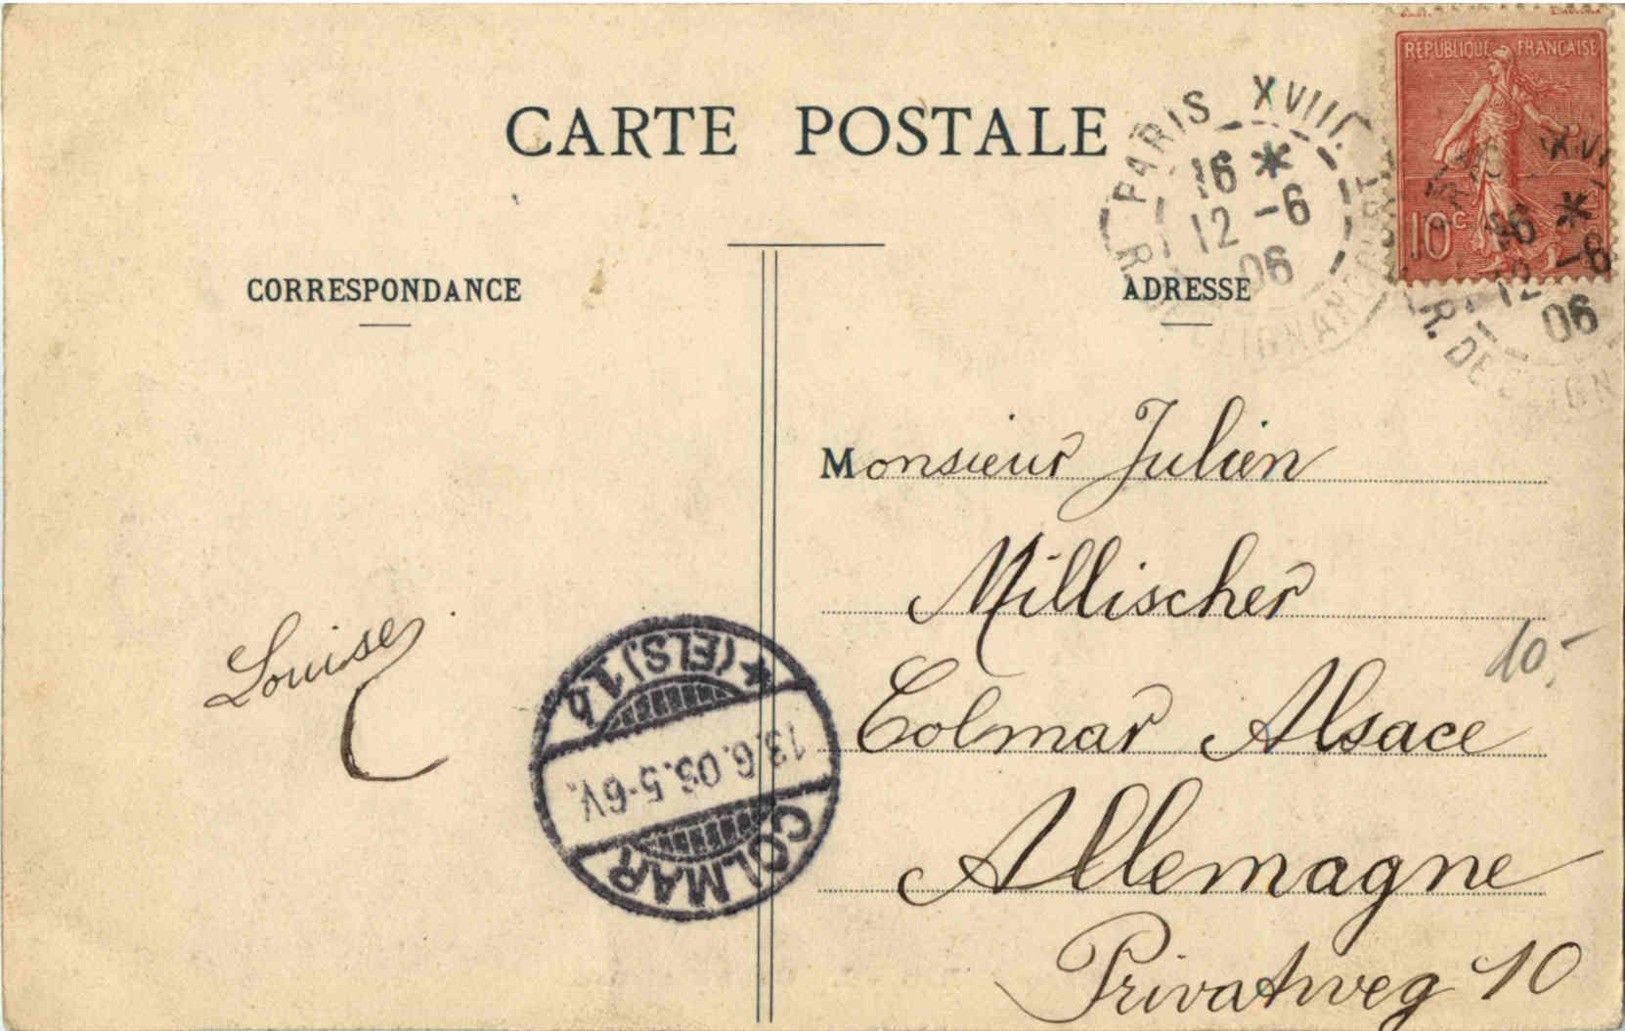 CARTE POSTALE
REPUBLIQUE FRANCAISE
10c
PARIS XVIII
16 *
12 -6
06
R. CLIGNANCOURT
16 *
12 -6
06
R. DE CLIGN
CORRESPONDANCE
ADRESSE
Monsieur Julien
Millischer
Colmar Alsace
Allemagne
Privatweg 10
10,-
Louise
COLMAR
13.6.06.5-6V.
*(ELS.)1b